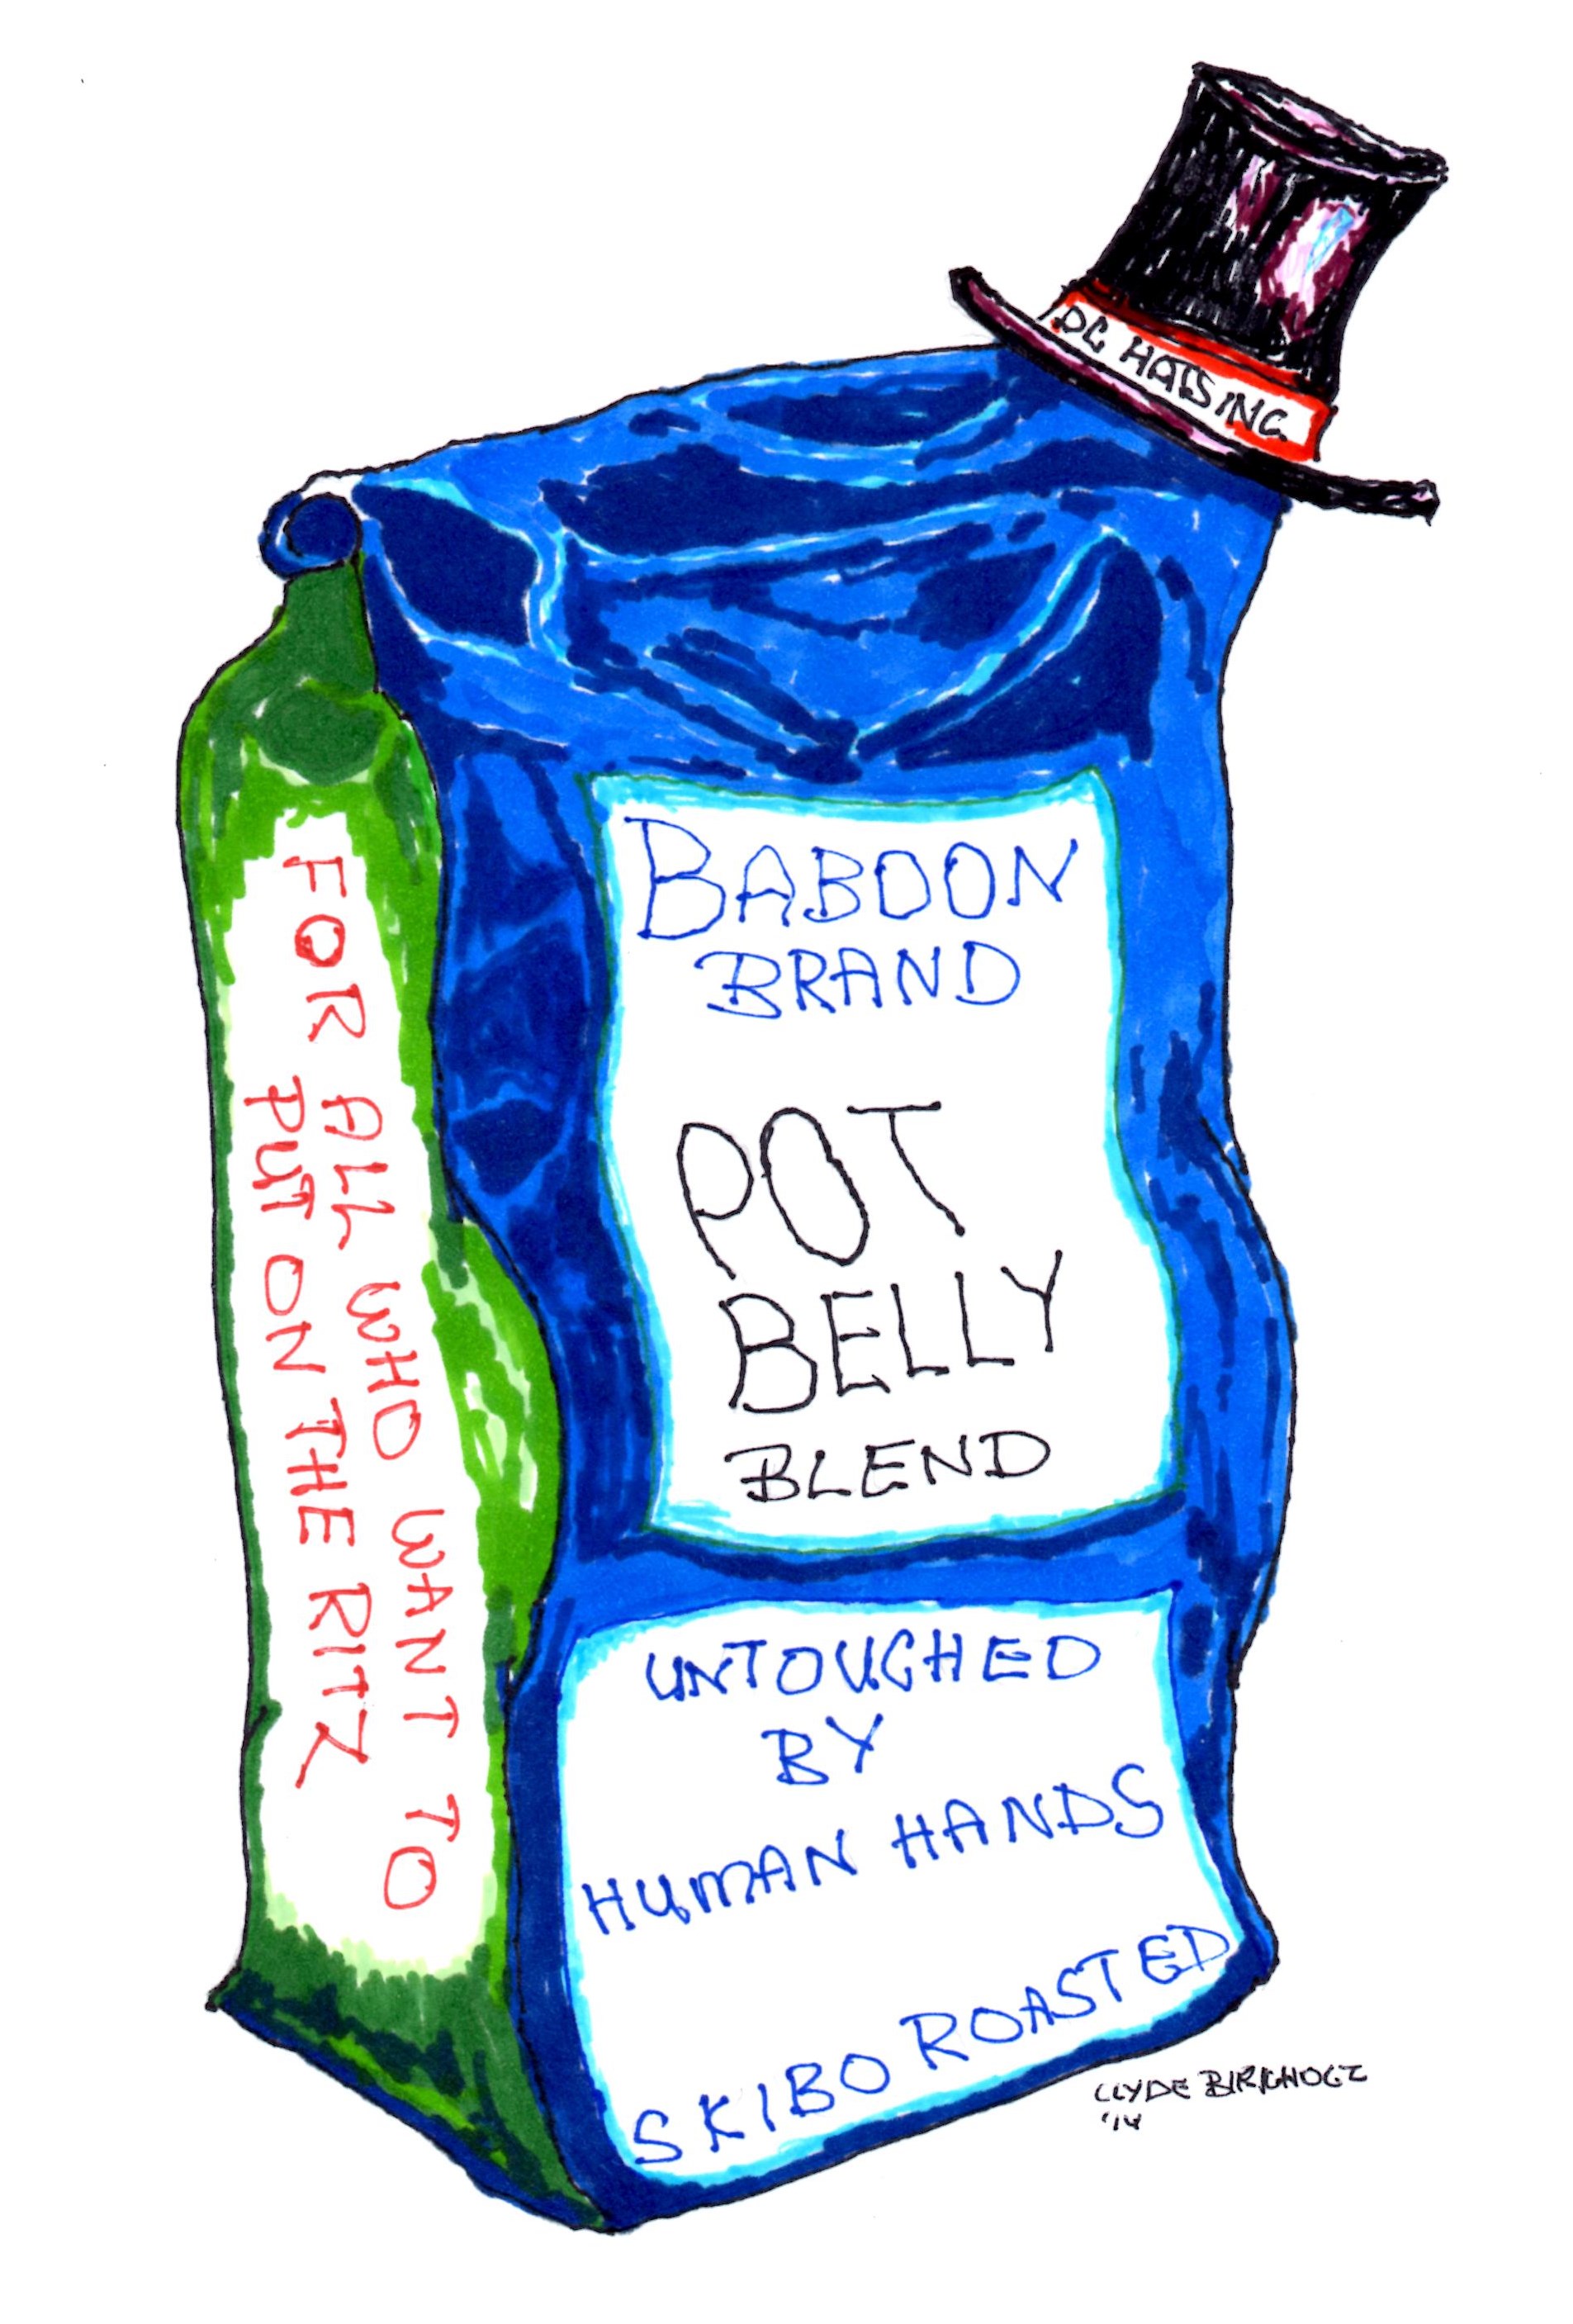 DC HATS INC.
BABOON
BRAND
POT
BELLY
BLEND
FOR ALL WHO WANT TO
PUT ON THE RITZ
UNTOUCHED
BY
HUMAN HANDS
SKIBO ROASTED
CLYDE BIRKHOLZ
'14